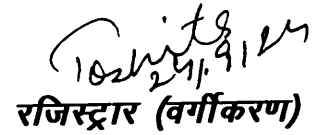 24/9/24
रजिस्ट्रार (वर्गीकरण)